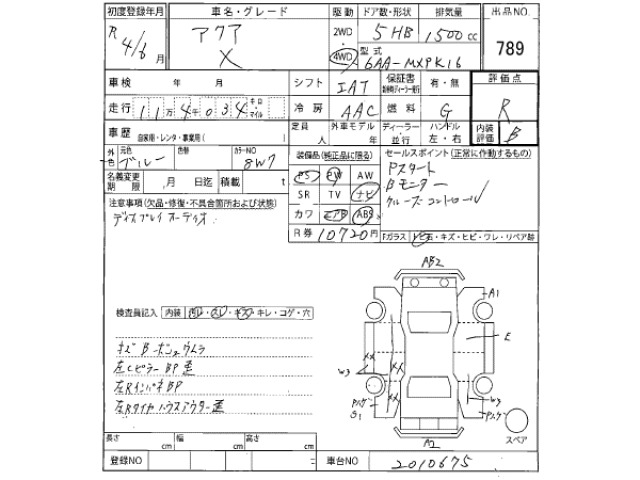 初度登録年月 車名・グレード 駆動 ドア数・形状 排気量 出品NO.
R 4/6月 アクア X 2WD 4WD 5HB 1500cc 789
型式 6AA-MXPK16
車検 年 月 シフト IAT 保証書 有・無 評価点
走行 11万4千034 キロ マイル 冷房 AAC 燃料 G R
車歴 自家用・レンタ・事業用( ) 定員 人 外車モデル年 年 ディーラー・並行 ハンドル 左・右 内装評価 B
外色 元色 ブルー 色替 カラーNO 8W7 装備品(純正品に限る) セールスポイント(正常に作動するもの)
名義変更期限 月 日迄 積載 t PS PW AW Pスタート
SR TV ナビ Bモニター
注意事項(欠品・修復・不具合箇所および状態) カワ エアB ABS クルーズコントロール
ディスプレイオーディオ R券 10720円 Fガラス トビ石・キズ・ヒビ・ワレ・リペア跡
AB2
A1
検査員記入 内装 汚レ・スレ・キズ・キレ・コゲ・穴
E
キズBーボンネウムラ
左CピラーBP歪
XX XX
W3 W3
左RインパネBP
Pスゲ Pスゲ
S1
左Rタイヤハウスアウター歪
A2
スペア
長さ cm 幅 cm 高さ cm
登録NO 車台NO 2010675